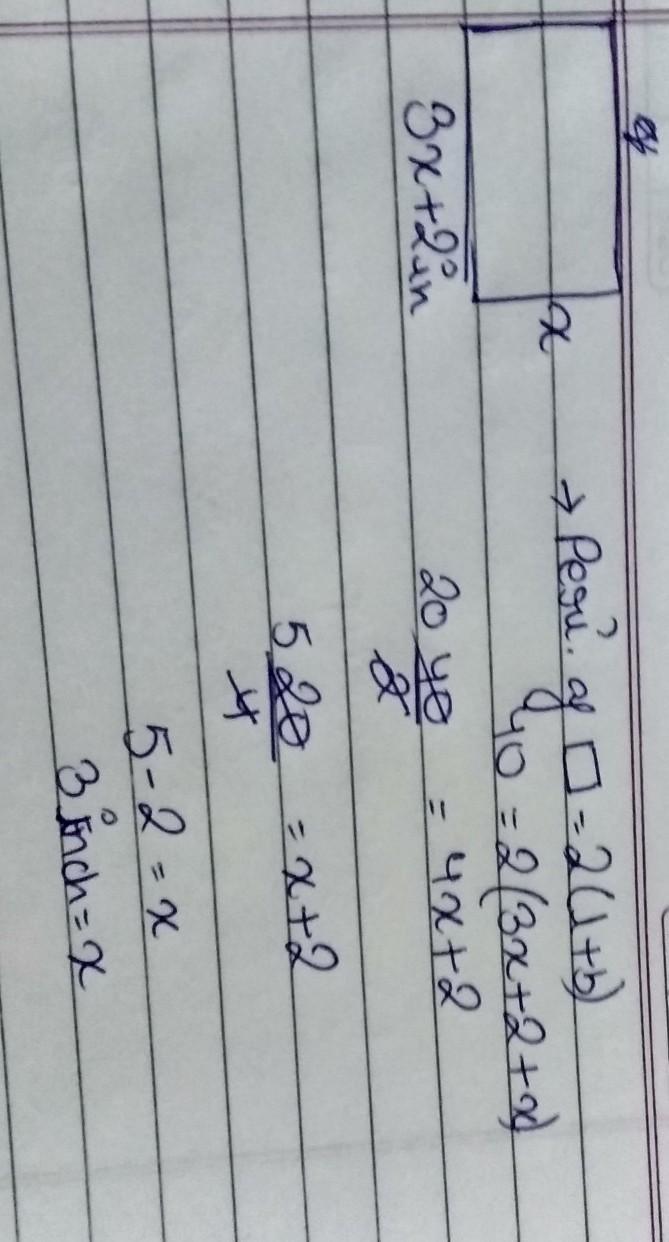 x
3x+2 in
→ Peri. of □ = 2(l+b)
40 = 2(3x+2+x)
20 40/2 = 4x+2
5 20/4 = x+2
5-2 = x
3 inch = x